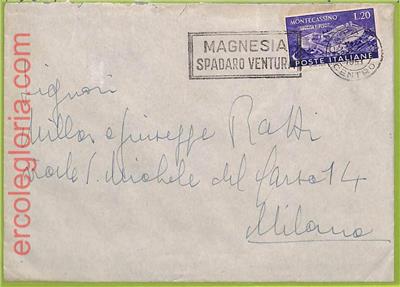 ercolegloria.com
MAGNESIA
SPADARO VENTURA
MONTECASSINO
L.20
POSTE ITALIANE
1951
CENTRO
Signori
Giuseppe Ratti
Viale S. Michele del Carso 14
Milano